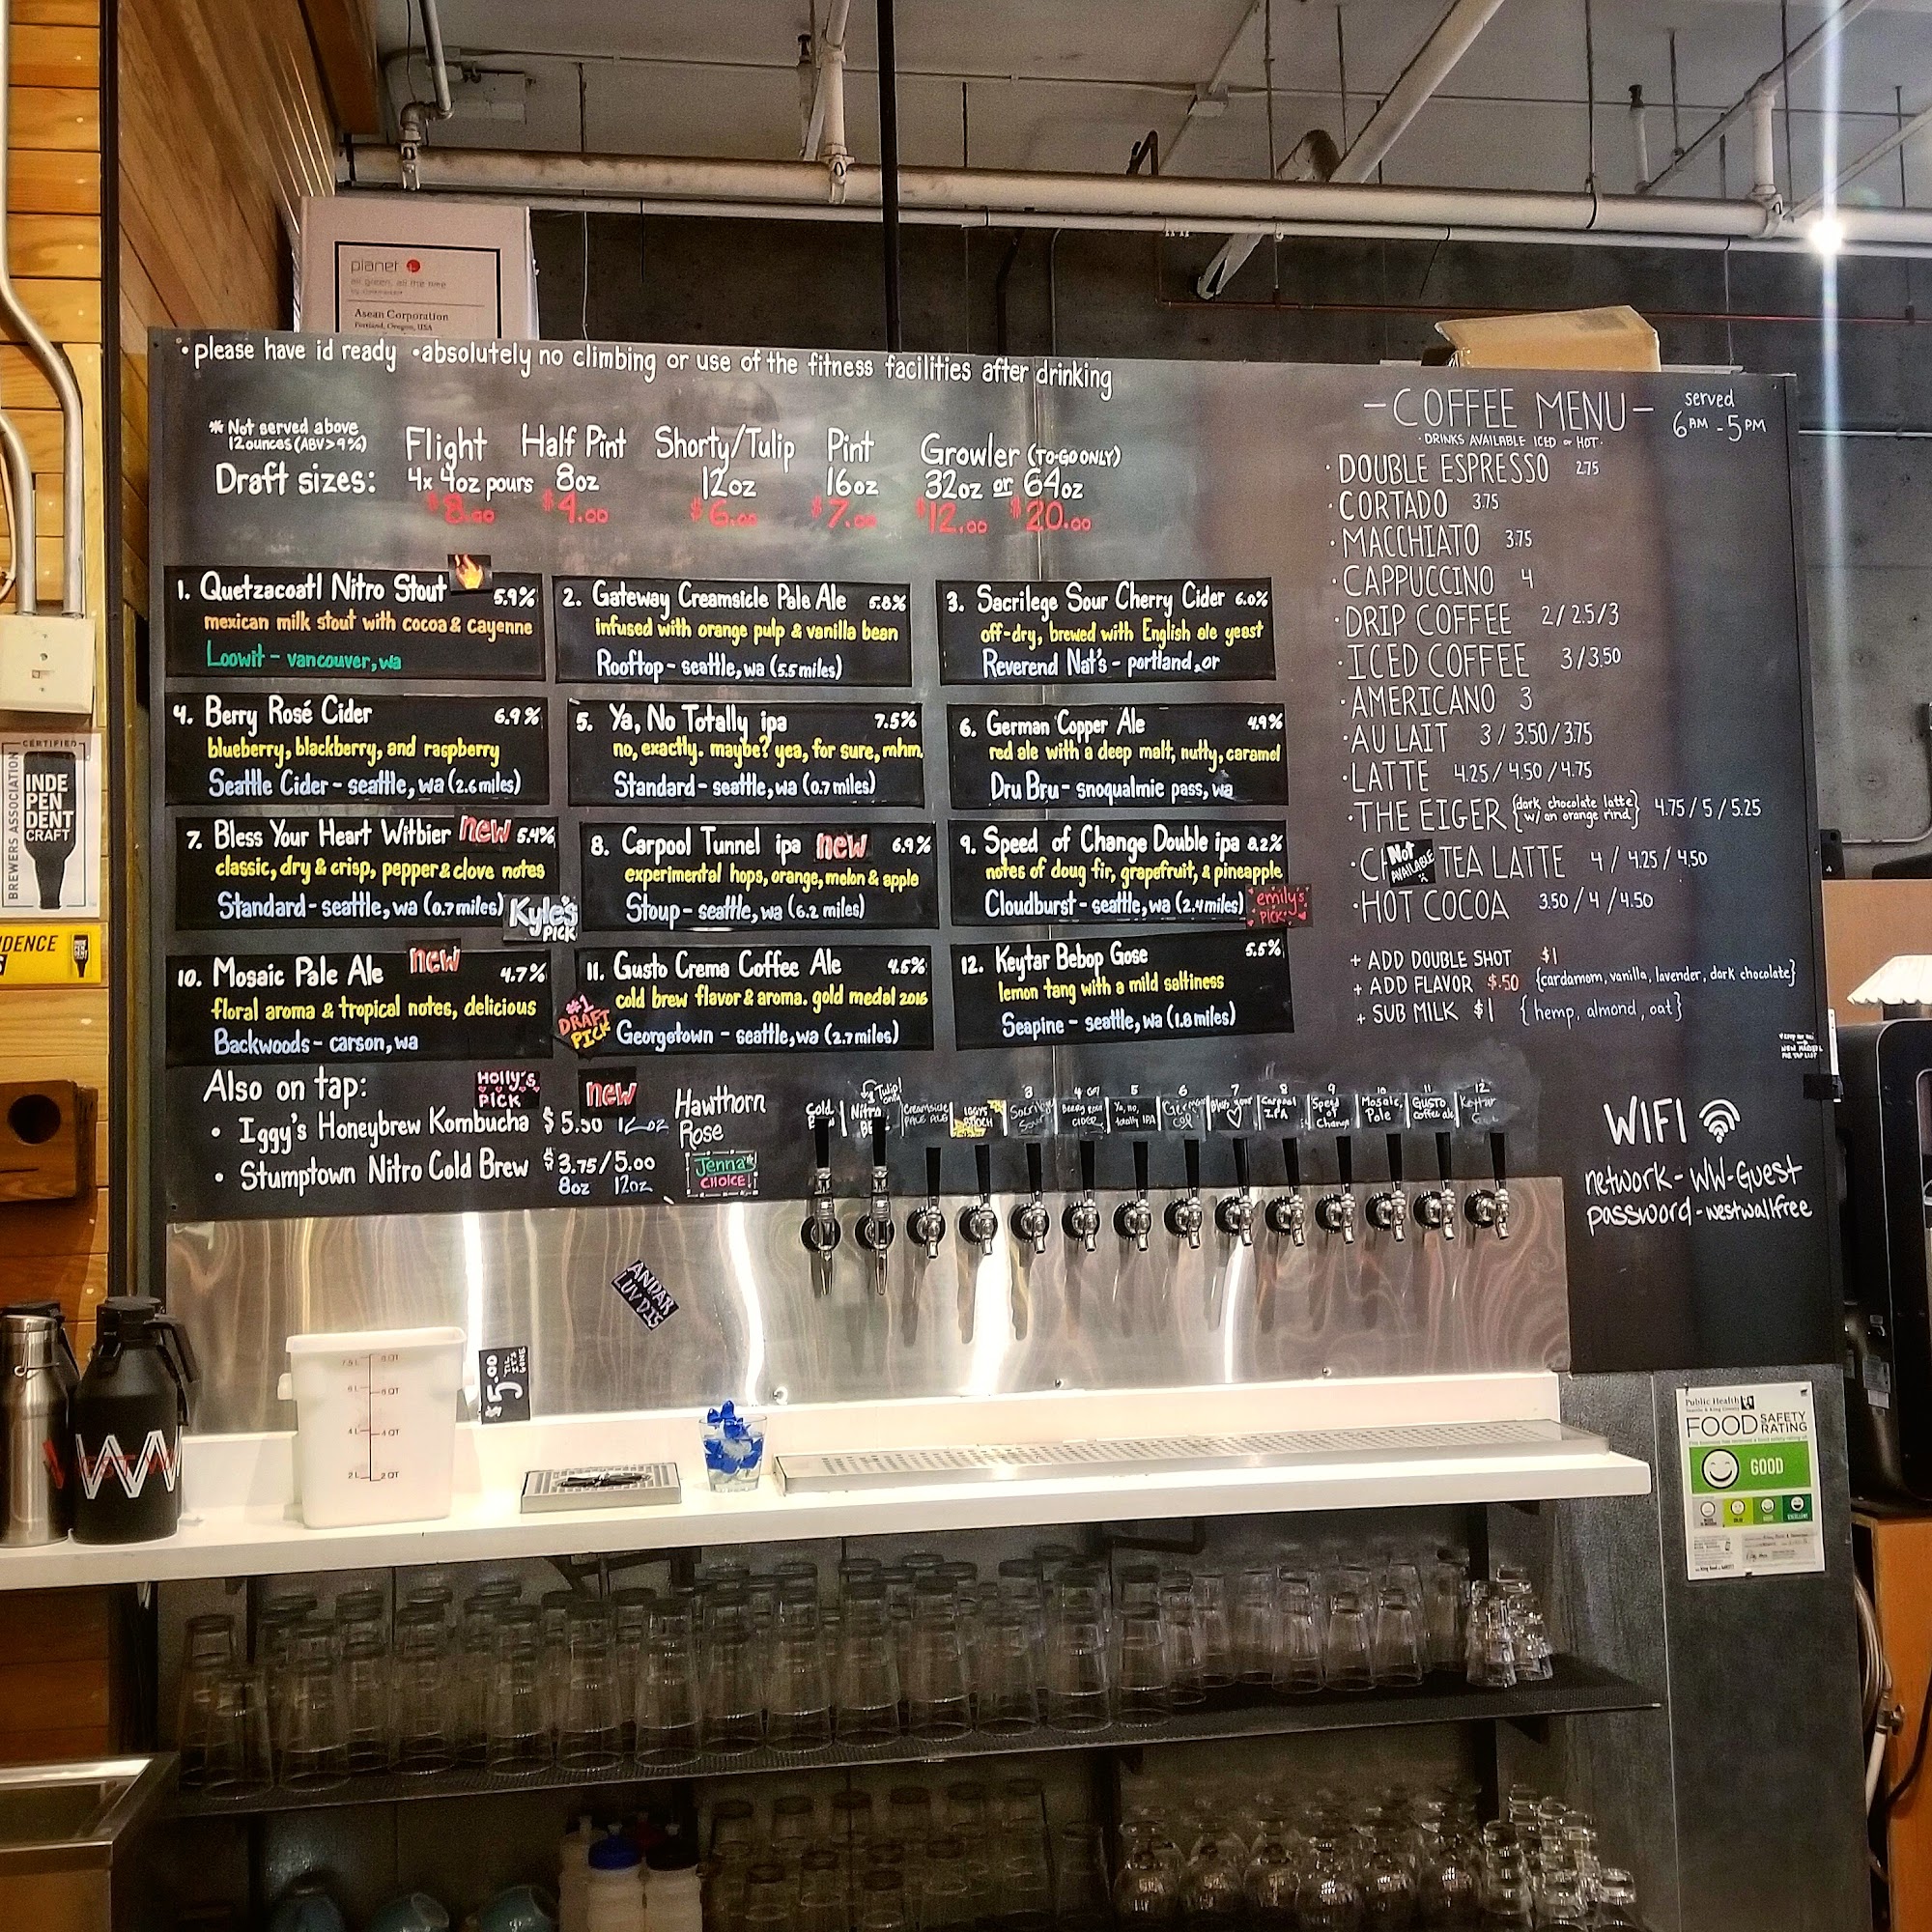 planet
all green, all the time
Asean Corporation
Portland, Oregon, USA
• please have id ready • absolutely no climbing or use of the fitness facilities after drinking
* Not served above
12 ounces (ABV > 9%)
Draft sizes:
Flight
4x 4oz pours
$8.00
Half Pint
8oz
$4.00
Shorty/Tulip
12oz
$6.00
Pint
16oz
$7.00
Growler (TO-GO ONLY)
32oz or 64oz
$12.00 $20.00
1. Quetzacoatl Nitro Stout 5.9%
mexican milk stout with cocoa & cayenne
Loowit - vancouver, wa
2. Gateway Creamsicle Pale Ale 5.8%
infused with orange pulp & vanilla bean
Rooftop - seattle, wa (5.5 miles)
3. Sacrilege Sour Cherry Cider 6.0%
off-dry, brewed with English ale yeast
Reverend Nat's - portland, or
4. Berry Rosé Cider 6.9%
blueberry, blackberry, and raspberry
Seattle Cider - seattle, wa (2.6 miles)
5. Ya, No Totally ipa 7.5%
no, exactly. maybe? yea, for sure, mhm.
Standard - seattle, wa (0.7 miles)
6. German Copper Ale 4.9%
red ale with a deep malt, nutty, caramel
Dru Bru - snoqualmie pass, wa
7. Bless Your Heart Witbier new 5.4%
classic, dry & crisp, pepper & clove notes
Standard - seattle, wa (0.7 miles)
Kyle's
PICK
8. Carpool Tunnel ipa new 6.9%
experimental hops, orange, melon & apple
Stoup - seattle, wa (6.2 miles)
9. Speed of Change Double ipa 8.2%
notes of doug fir, grapefruit, & pineapple
Cloudburst - seattle, wa (2.4 miles)
emily's
PICK
10. Mosaic Pale Ale new 4.7%
floral aroma & tropical notes, delicious
Backwoods - carson, wa
11. Gusto Crema Coffee Ale 4.5%
cold brew flavor & aroma. gold medal 2016
Georgetown - seattle, wa (2.7 miles)
#1
DRAFT
PICK
12. Keytar Bebop Gose 5.5%
lemon tang with a mild saltiness
Seapine - seattle, wa (1.8 miles)
Also on tap:
Holly's
PICK
new
• Iggy's Honeybrew Kombucha $5.50 12oz
Hawthorn
Rose
• Stumptown Nitro Cold Brew $3.75/5.00
8oz 12oz
Jenna's
CHOICE!
Tulip!
only
Cold
Nitro
Creamsicle
PALE ALE
3
4
CIDER
5
Ya, no,
totally IPA
6
7
Bless your
8
Carpool
IPA
9
Speed
of
Change
10
Mosaic
Pale
11
GUSTO
coffee ale
12
Keytar
-COFFEE MENU-
served
6AM - 5PM
· DRINKS AVAILABLE ICED or HOT ·
· DOUBLE ESPRESSO 2.75
· CORTADO 3.75
· MACCHIATO 3.75
· CAPPUCCINO 4
· DRIP COFFEE 2/2.5/3
· ICED COFFEE 3/3.50
· AMERICANO 3
· AU LAIT 3/3.50/3.75
· LATTE 4.25/4.50/4.75
· THE EIGER {dark chocolate latte w/ an orange rind} 4.75/5/5.25
· C Not AVAILABLE TEA LATTE 4/4.25/4.50
· HOT COCOA 3.50/4/4.50
+ ADD DOUBLE SHOT $1
+ ADD FLAVOR $.50 {cardamom, vanilla, lavender, dark chocolate}
+ SUB MILK $1 {hemp, almond, oat}
WIFI
network - WW-Guest
password - westwallfree
CERTIFIED
INDE
PEN
DENT
CRAFT
BREWERS ASSOCIATION
DENCE
ANDAR
LUV DIS
$5.00
TIL
IT'S
GONE
6L
6 QT
4L
4 QT
2L
2 QT
W
Public Health
Seattle & King County
FOOD SAFETY
RATING
GOOD